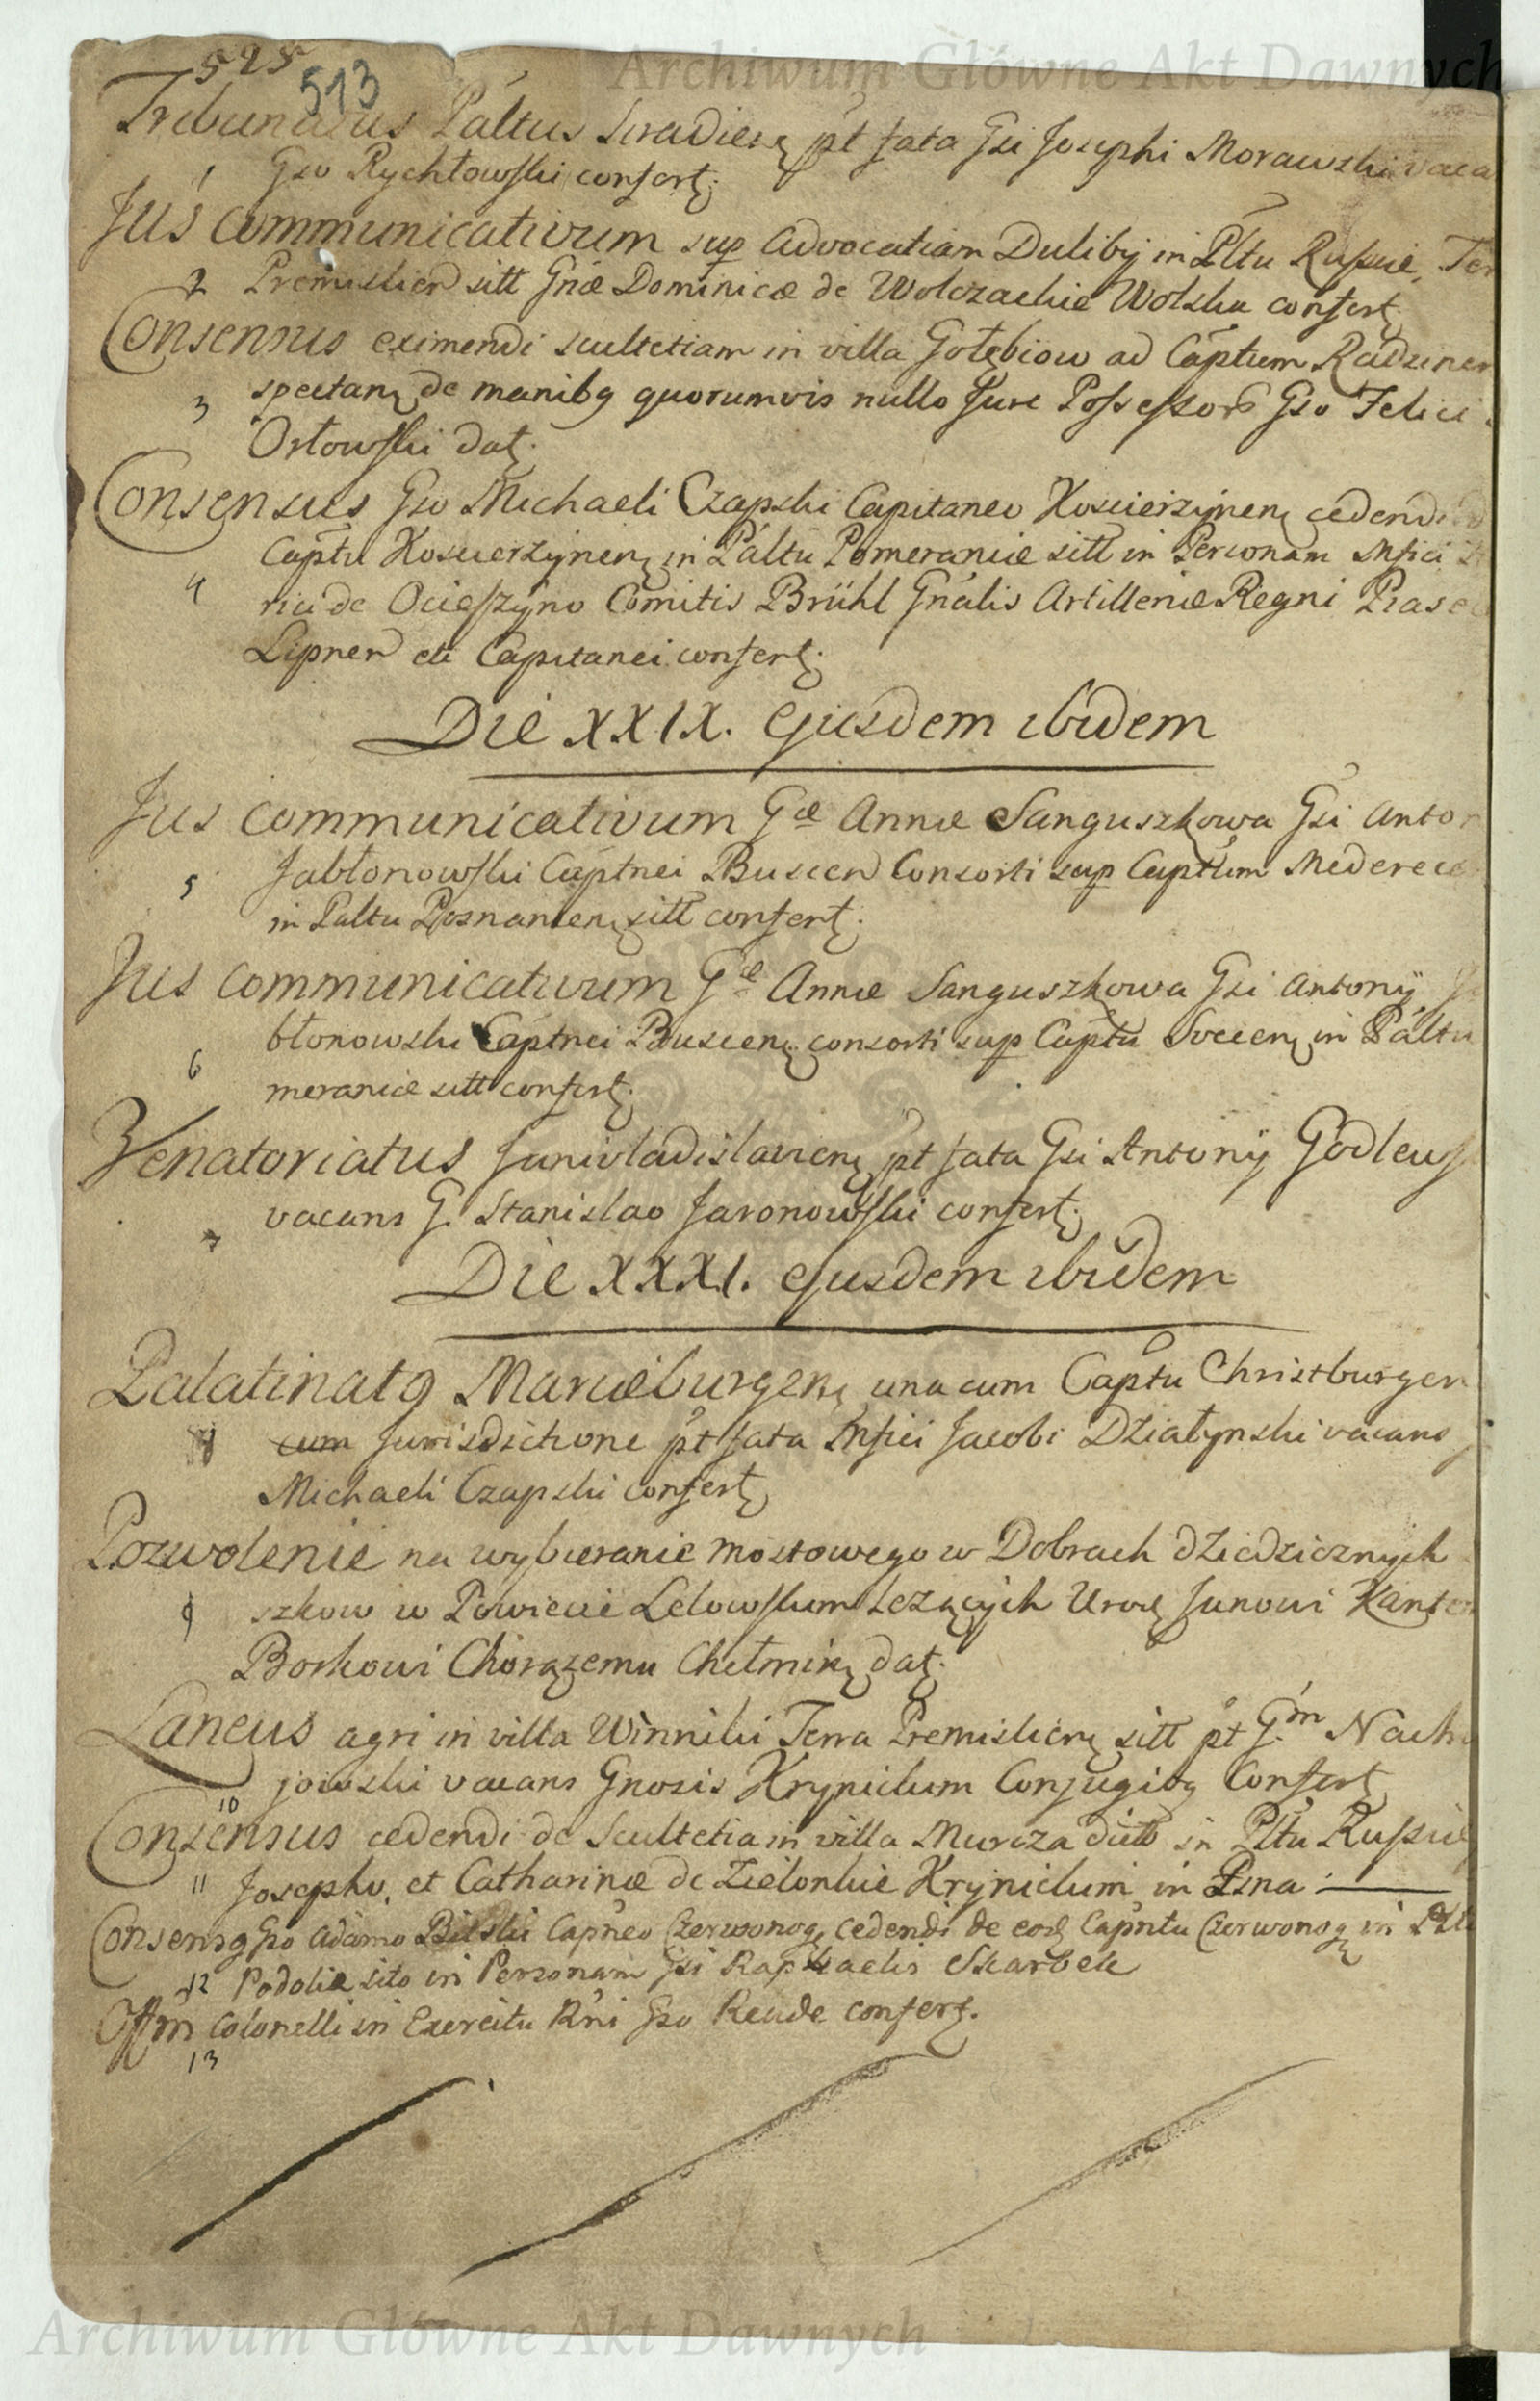 Archiwum Główne Akt Dawnych
525
513
Tribunatus Páltus Siradien pt fata Gsi Josephi Morawski vaca
1 Gso Rychłowski confert.
Jus Communicativum sup Advocatiam Duliby in Pltu Russiæ, Ter
2 Premislien sitt Gnæ Dominicæ de Wolczackie Wolska confert
Consensus eximendi scultetiam in villa Gołębiow ad Captum Radzinen
3 spectan de manibg quorumvis nullo Jure Possessor Gso Felici
Orłowski dat.
Consensus Gso Michaeli Czapski Capitaneo Koscierzynen cedendi
Captu Koscierzynen in Páltu Pomeraniæ sitt in Personam
4 de Ocieszyno Comitis Brühl Gnális Artilleriæ Regni
Lipnen etc Capitanei confert.
Die XXIX. Ejusdem ibidem
Jus Communicativum Gæ Annæ Sanguszkowa Gsi Anton
5 Jabłonowski Captnei Buscen Consorti sup Captum Mederecen
in Paltu Posnanien sitt confert.
Jus Communicativum Gæ Annæ Sanguszkowa Gsi Antonij Ja
błonowski Captnei Buscen consorti sup Captu Svecen in Páltu
6 meraniæ sitt confert.
Venatoriatus Junivladislavien pt fata Gsi Antonij Godlews
7 vacans G. Stanislao Jaronowski confert.
Die XXXI. ejusdem ibidem
Palatinatg Mariæburgen una cum Captu Christburgen
8 cum Jurisdictione pt fata Jacobi Działynski vacans
Michaeli Czapski confert
Pozwolenie na wybieranie mostowego w Dobrach dziedzicznych
9 szkow w Powiecie Lelowskim leżących Urod Janowi Kantem
Borkowi Chorązemu Chełmin dat.
Laneus agri in villa Winniki Terra Premislien sitt pt G.m Nach
jowski vacans Gnosis Krynickim Conjugibg Confert
10
Consensus cedendi de Scultetia in villa Murcza dicto in Pltu Russiæ
11 Josepho, et Catharinæ de Zielonkie Krynickim in Psna
Consensg Gso Adamo Bielski Capneo Czerwonog cedendi de eod Capntu Czerwonog in Pltu
12 Podoliæ sito in Personam Gsi Raphaelis Skarbek
Offm Colonelli in Exercitu Rni Gso Reude confert.
13
Archiwum Główne Akt Dawnych